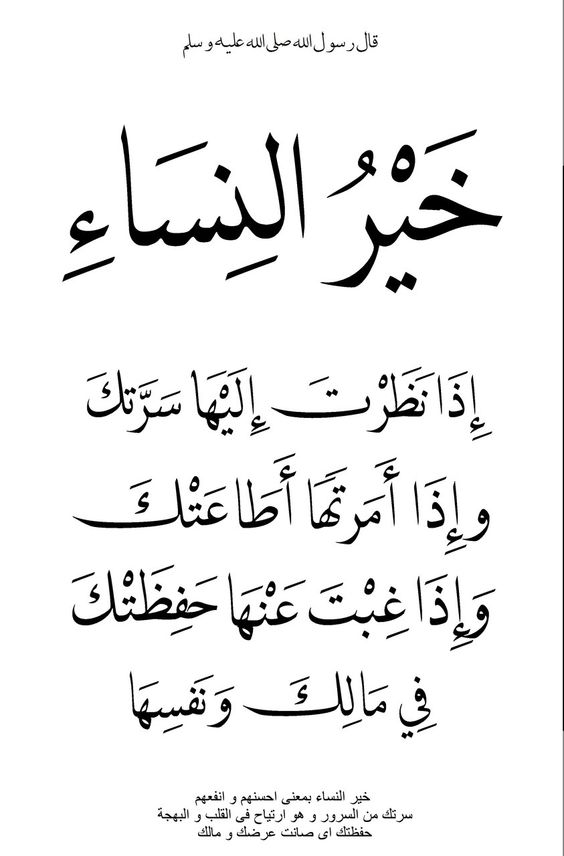 قال رسول الله صلى الله عليه و سلم
خَيْرُ النِسَاءِ
إِذَا نَظَرْتَ إِلَيْهَا سَرَّتكَ
وإِذَا أَمَرتَهَا أَطَاعَتْكَ
وَإِذَا غِبْتَ عَنْهَا حَفِظَتْكَ
فِي مَالِكَ وَنَفسِهَا
خير النساء بمعنى احسنهم و انفعهم
سرتك من السرور و هو ارتياح فى القلب و البهجة
حفظتك اى صانت عرضك و مالك